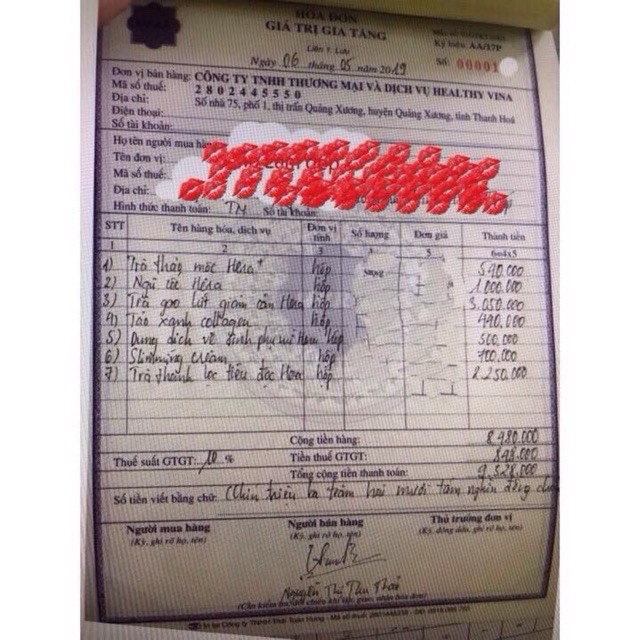 HÓA ĐƠN
GIÁ TRỊ GIA TĂNG
Liên 1: Lưu
Ký hiệu: AA/17P
Ngày 06 tháng 05 năm 2019
Số: 00001
Đơn vị bán hàng: CÔNG TY TNHH THƯƠNG MẠI VÀ DỊCH VỤ HEALTHY VINA
Mã số thuế: 2802445550
Địa chỉ: Số nhà 75, phố 1, thị trấn Quảng Xương, huyện Quảng Xương, tỉnh Thanh Hoá
Điện thoại:
Số tài khoản:
Họ tên người mua
Tên đơn vị:
Mã số thuế:
Địa chỉ:
Hình thức thanh toán: TM Số tài khoản:
STT Tên hàng hóa, dịch vụ Đơn vị tính Số lượng Đơn giá Thành tiền
1 2 3 4 5 6=4x5
1) Trà thảo mộc Hera hộp 540.000
2) Ngũ cốc Hera hộp 1.000.000
3) Trà gạo lứt giảm cân Hera hộp 3.050.000
4) Tảo xanh collagen hộp 440.000
5) Dung dịch vệ sinh phụ nữ hộp 500.000
6) Slimming cream hộp 700.000
7) Trà thanh lọc tiêu độc Hera hộp 2.250.000
Cộng tiền hàng: 8.480.000
Thuế suất GTGT: 10 % Tiền thuế GTGT: 848.000
Tổng cộng tiền thanh toán: 9.328.000
Số tiền viết bằng chữ: Chín triệu ba trăm hai mươi tám nghìn đồng
Người mua hàng Người bán hàng Thủ trưởng đơn vị
(Ký, ghi rõ họ, tên) (Ký, ghi rõ họ, tên) (Ký, đóng dấu, ghi rõ họ, tên)
Nguyễn Thị Thu